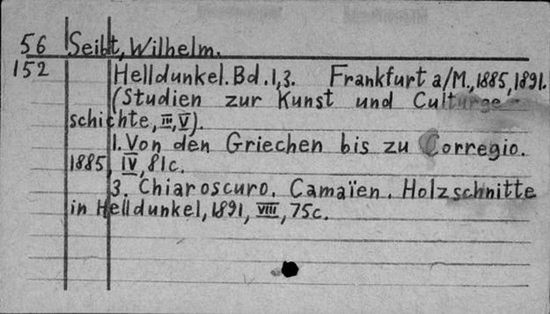 56 Seibt, Wilhelm.
152 Helldunkel. Bd. 1,3. Frankfurt a/M., 1885, 1891.
(Studien zur Kunst und Culturge-
schichte, III, V).
1. Von den Griechen bis zu Corregio.
1885, IV, 81c.
3. Chiaroscuro. Camaïen. Holzschnitte
in Helldunkel, 1891, VIII, 75c.